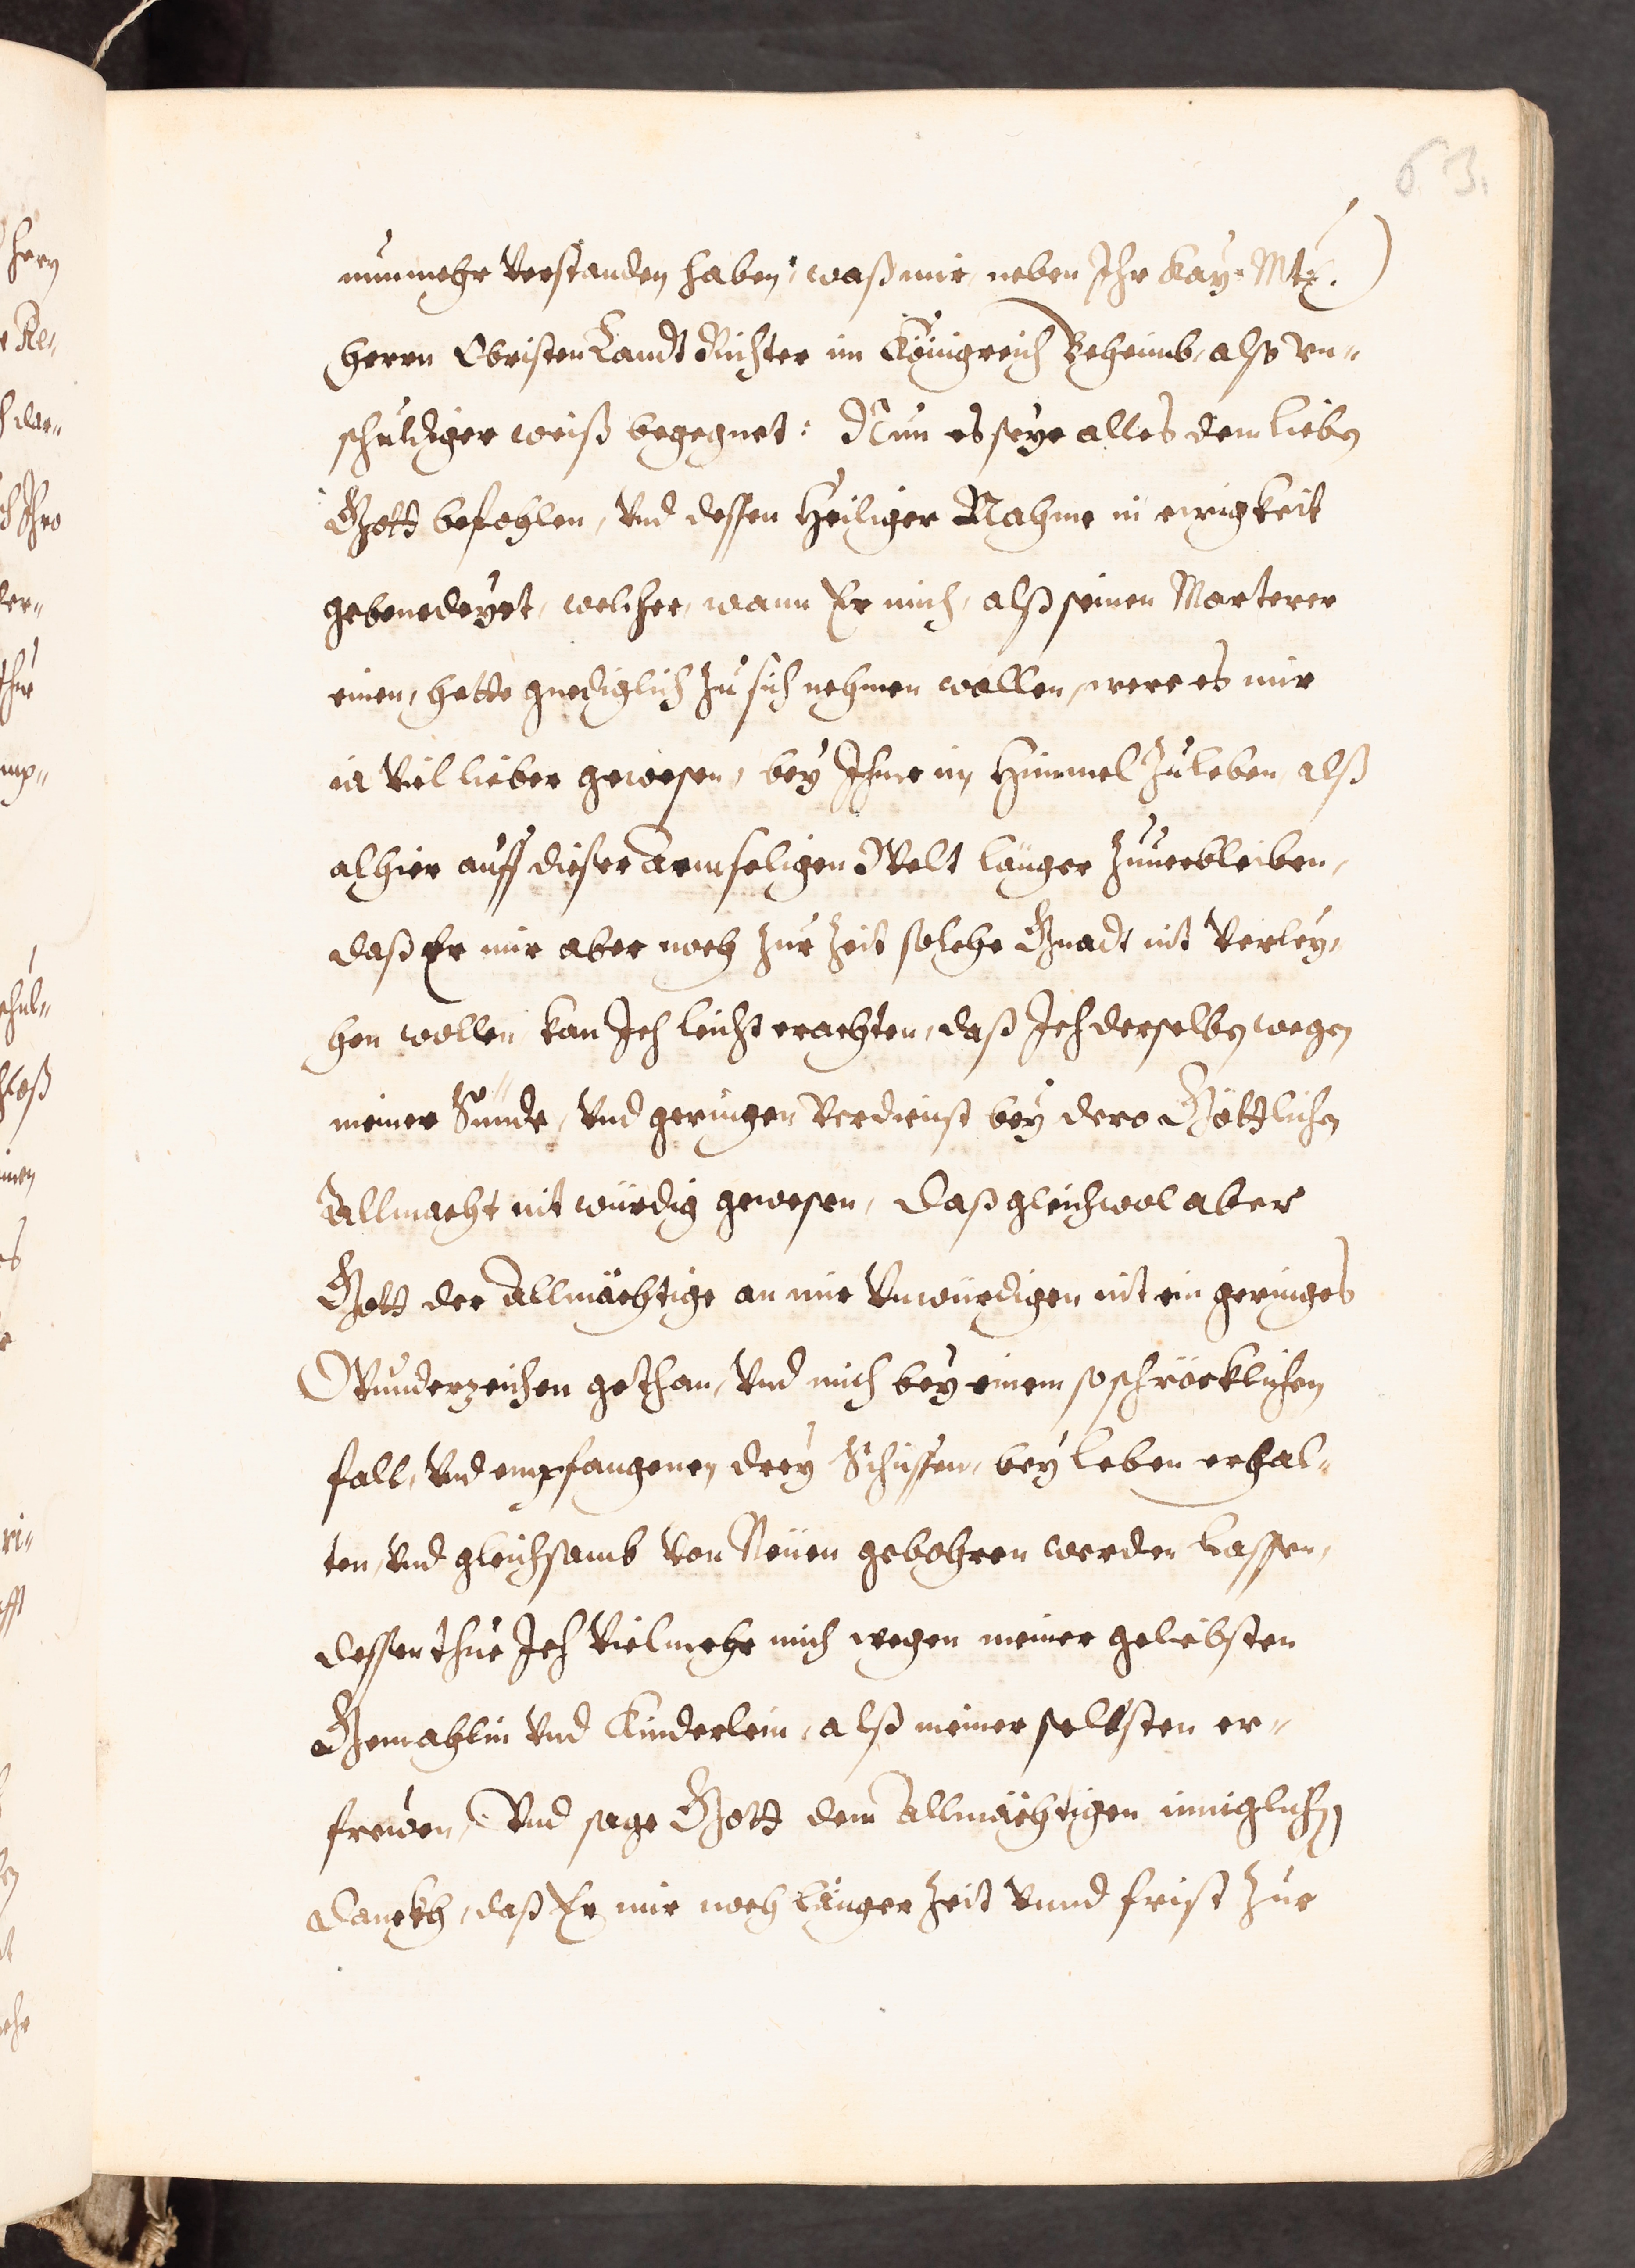 63.
nunmehr verstanden haben, waß mir, neben Ihr Kay: Mtt.
herrn Obristen Landt Richter im Königreich Beheimb, also vn-
schuldiger weiß begegnet: Nun es seye alles dem lieben
Gott befohlen, vnd dessen Heiliger Nahme in ewigkeit
gebenedeyet, welcher, wann Er mich, alß seinen Marterer
einen, hette gnediglich zu sich nehmen wollen, were es mir
ia viel lieber gewesen, bey Ihme im Himmel zuleben, alß
alhier auff dieser Armseligen Welt länger zuuerbleiben,
daß Er mir aber noch zur Zeit solche Gnadt nit verley,
hen wollen kan Ich leicht erachten, daß Ich derselben wegen
meiner Sünde, vnd geringen Verdienst bey dero Göttlichen
Allmacht nit würdig gewesen, Daß gleichwol aber
Gott der Allmächtige an mir Vnwürdigen nit ein geringes
Wunderzeichen gethan, vnd mich bey einem so schröcklichen
fall, vnd empfangenen drey Schüssen, bey leben erhal-
ten, vnd gleichsamb von Neüen gebohren werden lassen,
dessen thue Ich vielmehr mich wegen meiner geliebsten
Gemahlin vnd Kinderlein, alß meiner selbsten er-
freüen, Vnd sage Gott dem Allmächtigen inniglichen
Danckh, daß Er mir noch länger Zeit vnnd frist zur